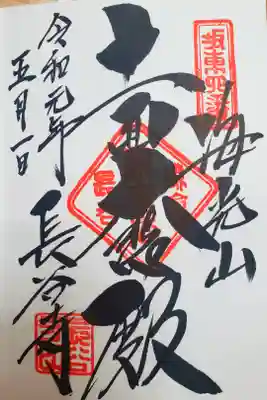 坂東四番
海光山
十一面大悲殿
令和元年
五月一日
長谷寺